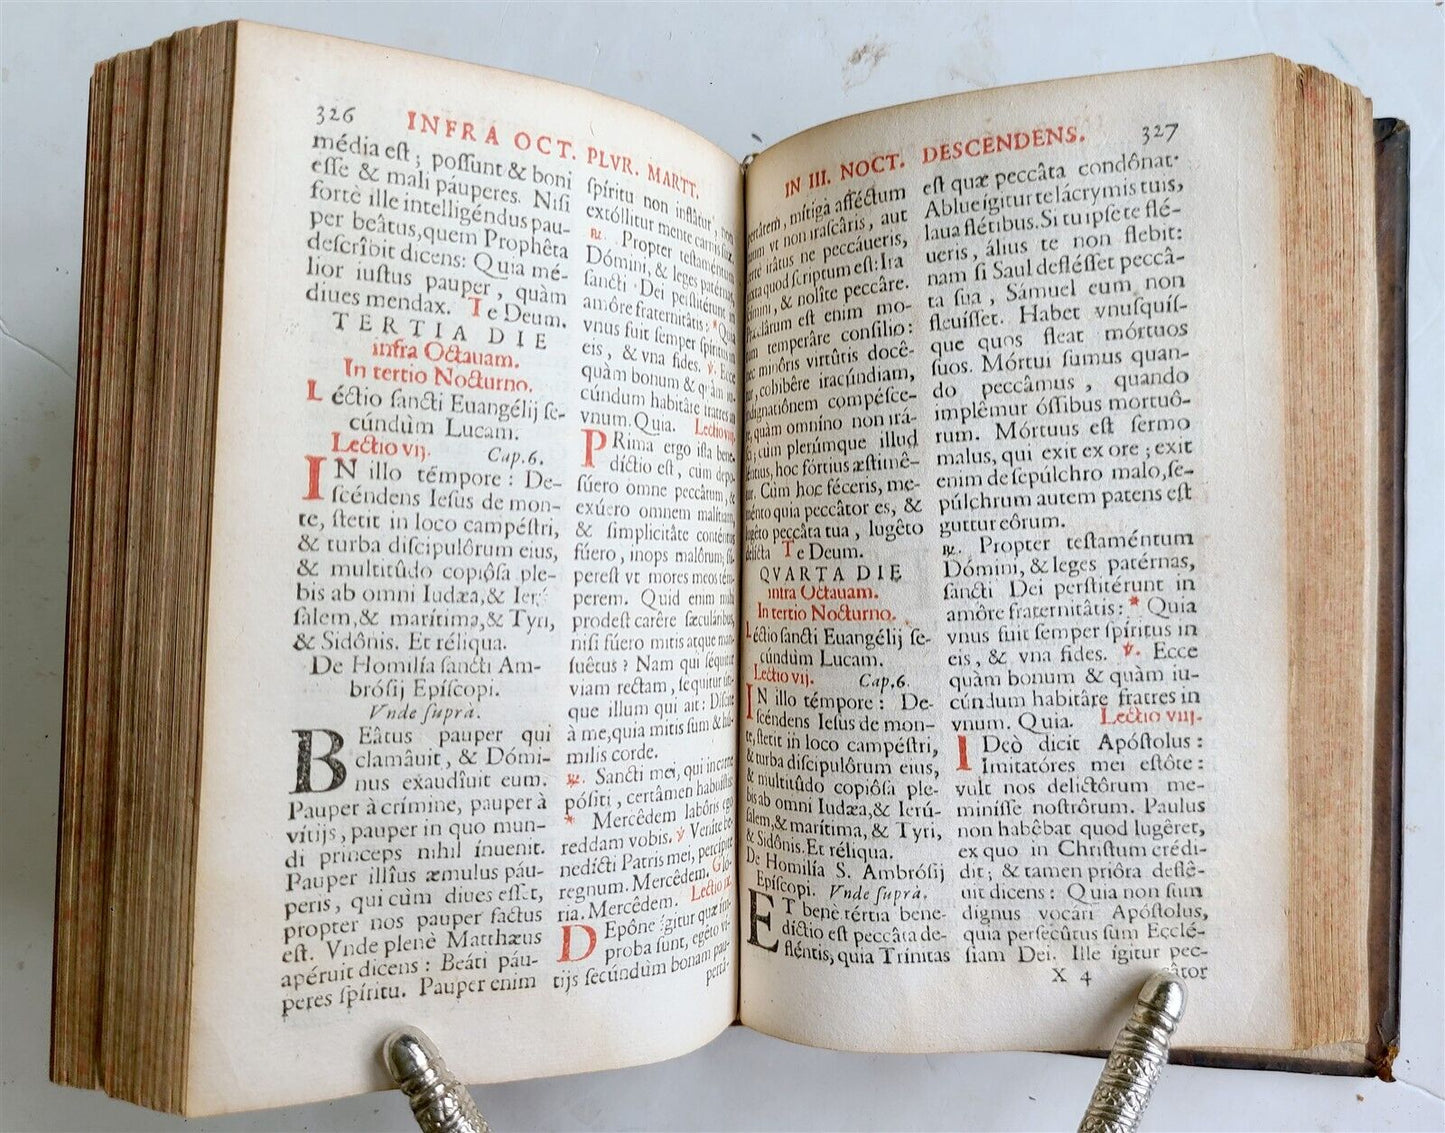 326 INFRA OCT. PLVR. MARTT.
média eſt; poſſunt & boni
eſſe & mali páuperes. Niſi
fortè ille intelligéndus pau-
per beâtus, quem Prophêta
deſcrîbit dicens: Quia mé-
lior iuſtus pauper, quàm
diues mendax. Te Deum.
TERTIA DIE
infra Octauam.
In tertio Nocturno.
Léctio ſancti Euangélij ſe-
cúndùm Lucam.
Lectio vij. Cap. 6.
IN illo témpore: De-
ſcéndens Ieſus de mon-
te, ſtetit in loco campéſtri,
& turba diſcipulôrum eius,
& multitûdo copiôſa ple-
bis ab omni Iudæa, & Ierú-
ſalem, & marítima, & Tyri,
& Sidônis. Et réliqua.
De Homilía ſancti Am-
bróſij Epíſcopi.
Vnde ſuprà.
BEâtus pauper qui
clamâuit, & Dómi-
nus exaudîuit eum.
Pauper à crímine, pauper à
vítijs, pauper in quo mun-
di princeps nihil ínuenit.
Pauper illîus æmulus páu-
peris, qui cùm diues eſſet,
propter nos pauper factus
eſt. Vnde plenè Matthæus
apéruit dicens: Beáti páu-
peres ſpíritu. Pauper enim
ſpíritu non inflâtur, non
extóllitur mente carnis ſuæ.
℟. Propter teſtaméntum
Dómini, & leges patérnas,
ſancti Dei perſtitérunt in
amôre fraternitâtis: * Quia
vnus fuit ſemper ſpíritus in
eis, & vna fides. ℣. Ecce
quàm bonum & quàm iu-
cúndum habitâre fratres in
vnum. Quia. Lectio viij.
PRima ergo iſta bene-
díctio eſt, cùm depo-
ſúero omne peccâtum, &
exúero omnem malítiam,
& ſimplicitâte conténtus
fúero, inops malôrum; ſú-
pereſt vt mores meos tém-
perem. Quid enim mihi
prodeſt carêre ſæculáribus,
niſi fúero mitis atque man-
ſuêtus? Nam qui ſéquitur
viam rectam, ſequitur út-
que illum qui ait: Díſcite
à me, quia mitis ſum & hú-
milis corde.
℟. Sancti mei, qui in carne
póſiti, certâmen habuíſtis:
* Mercêdem labôris ego
reddam vobis. ℣. Veníte be-
nedícti Patris mei, percípite
regnum. Mercêdem. Gló-
ria. Mercêdem. Lectio ix.
DEpône ígitur quæ ím-
proba ſunt, egéto ví-
tijs ſecúndùm bonam pau-
pertâ-
IN III. NOCT. DESCENDENS. 327
pertâtem, mítiga afféctum
tuum vt non iraſcâris, aut
certè irâtus ne peccáueris,
iuxta quod ſcriptum eſt: Ira
ſcímini, & nolîte peccâre.
Præclârum eſt enim mo-
tum temperâre conſílio:
nec minôris virtûtis docê-
tur, cohibêre iracúndiam,
indignatiônem compéſce-
re, quàm omnîno non irá-
ſci; cùm plerúmque illud
léntius, hoc fórtius æſtimê-
tur. Cùm hoc féceris, me-
ménto quia peccâtor es, &
lugêto peccâta tua, lugêto
delícta Te Deum.
QVARTA DIE
intra Octauam.
In tertio Nocturno.
Léctio ſancti Euangélij ſe-
cúndùm Lucam.
Lectio vij. Cap. 6.
IN illo témpore: De-
ſcéndens Ieſus de mon-
te, ſtetit in loco campéſtri,
& turba diſcipulôrum eius,
& multitûdo copiôſa ple-
bis ab omni Iudæa, & Ierú-
ſalem, & marítima, & Tyri,
& Sidônis. Et réliqua.
De Homilía S. Ambróſij
Epíſcopi. Vnde ſupra.
ET benè tértia bene-
díctio eſt peccâta de-
fléntis, quia Trínitas
eſt quæ peccâta condônat.
Ablue ígitur te lácrymis tuis,
laua flétibus. Si tu ipſe te flé-
ueris, álius te non flebit:
nam ſi Saul defléſſet peccâ-
ta ſua, Sámuel eum non
fleuiſſet. Habet vnuſquíſ-
que quos fleat mórtuos
ſuos. Mórtui ſumus quan-
do peccâmus, quando
implêmur óſſibus mortuô-
rum. Mórtuus eſt ſermo
malus, qui exit ex ore; exit
enim de ſepúlchro malo, ſe-
púlchrum autem patens eſt
guttur eôrum.
℟. Propter teſtaméntum
Dómini, & leges patérnas,
ſancti Dei perſtitérunt in
amôre fraternitâtis: * Quia
vnus fuit ſemper ſpíritus in
eis, & vna fides. ℣. Ecce
quàm bonum & quàm iu-
cúndum habitâre fratres in
vnum. Quia. Lectio viij.
IDeò dicit Apóſtolus:
Imitatóres mei eſtôte:
vult nos delictôrum me-
miníſſe noſtrôrum. Paulus
non habêbat quod lugêret,
ex quo in Chriſtum crédi-
dit; & tamen priôra deflê-
uit dicens: Quia non ſum
dignus vocári Apóſtolus,
quia perſecûtus ſum Eccle-
ſiam Dei. Ille ígitur pec-
X 4 câtor